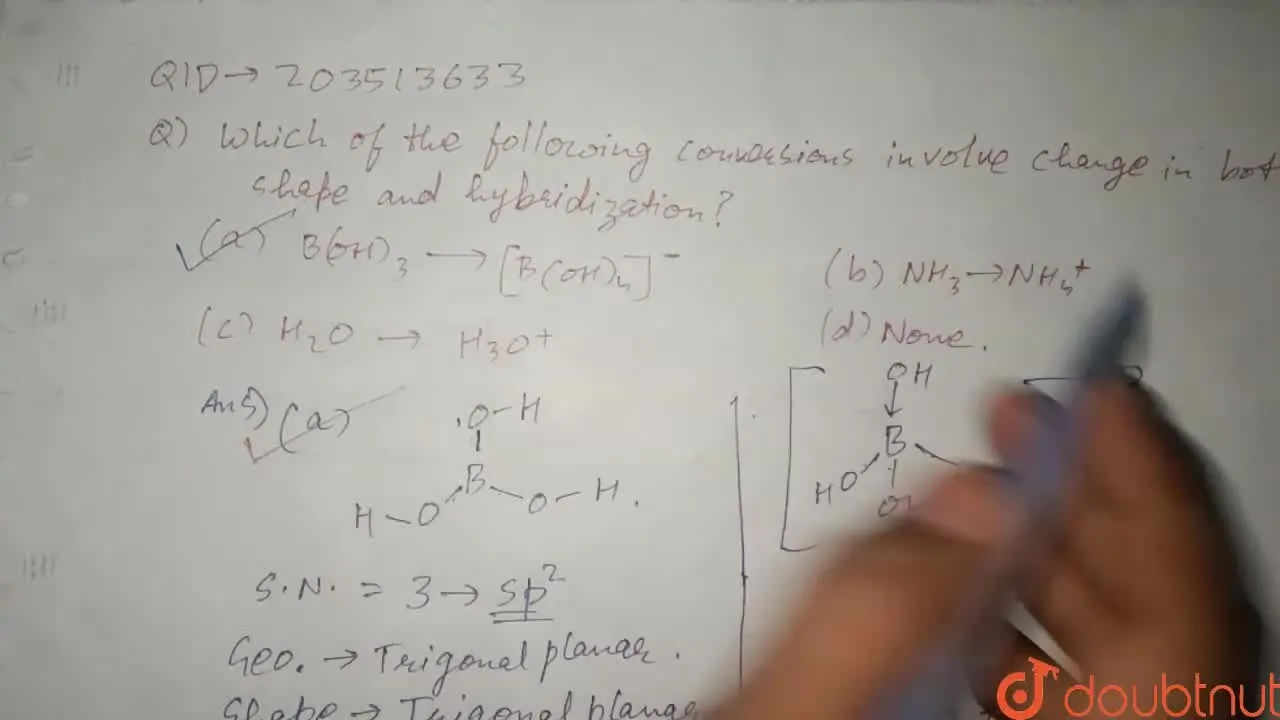 QID → 203513633
Q) Which of the following conversions involve change in bot
shape and hybridization?
(a) B(OH)3 → [B(OH)4]⁻
(b) NH3 → NH4⁺
(c) H2O → H3O⁺
(d) None.
Ans) (a)
O-H
B
H-O
O-H.
OH
B
HO
S.N. = 3 → sp²
Geo. → Trigonal planar.
Shape → Trigonal planar
doubtnut